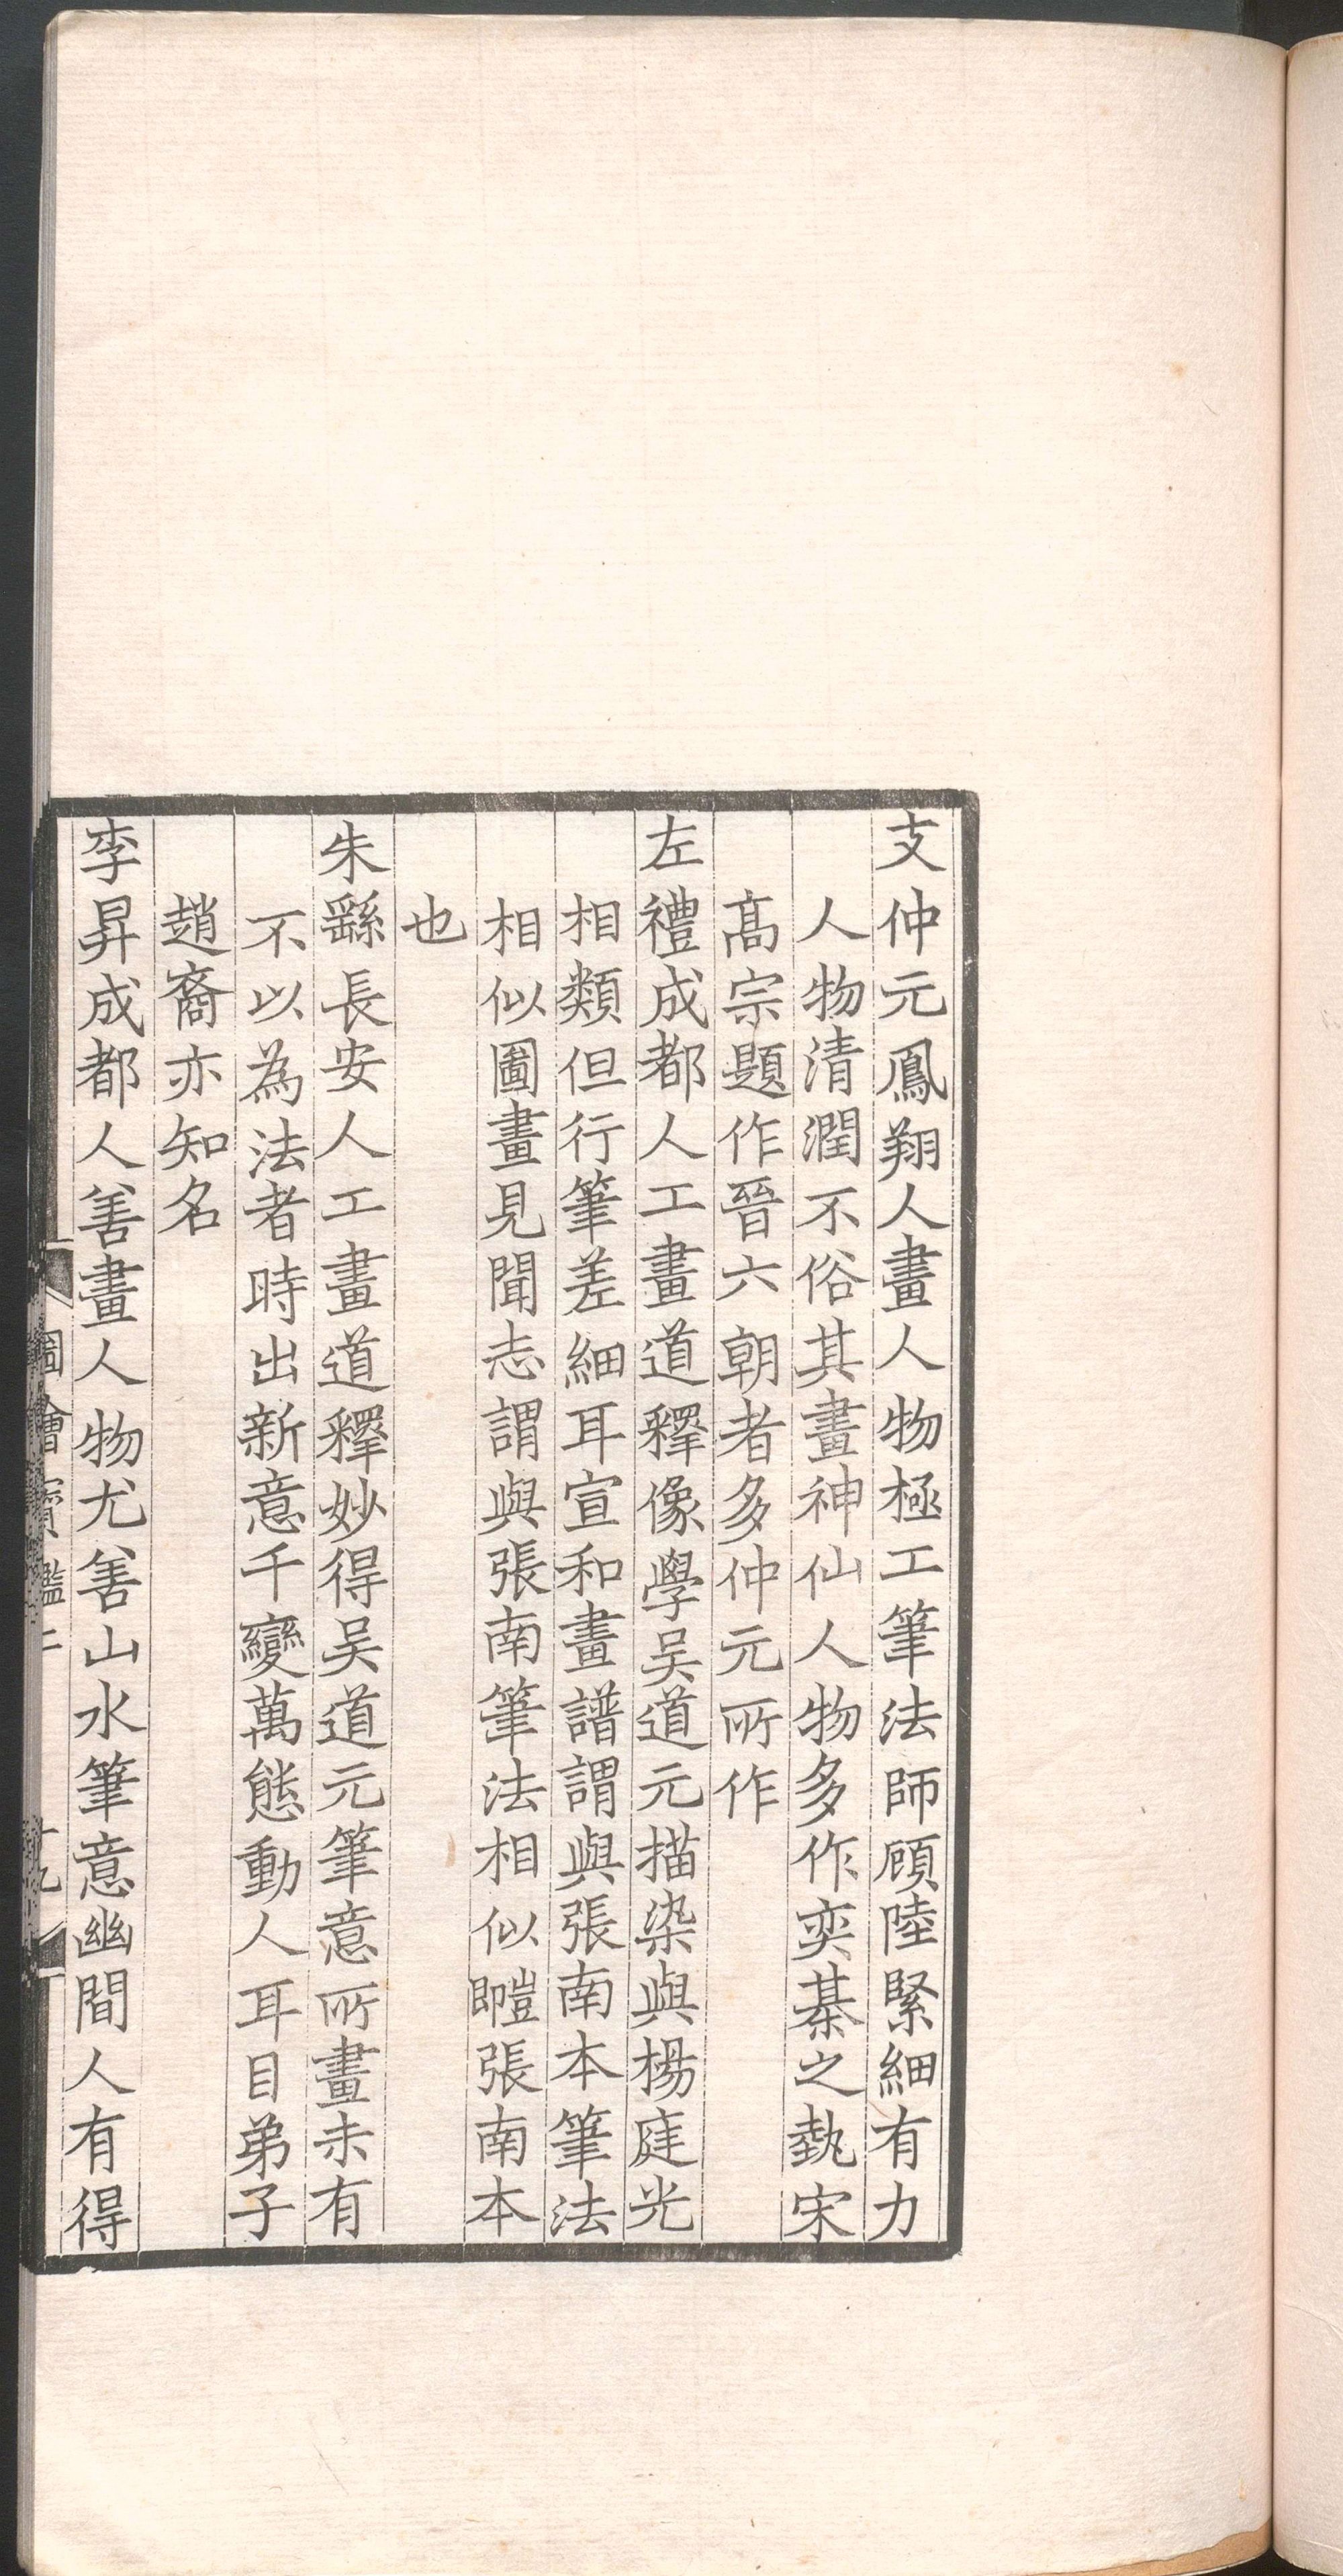 支仲元鳳翔人畫人物極工筆法師顧陸緊細有力
人物清潤不俗其畫神仙人物多作奕棊之埶宋
髙宗題作晉六朝者多仲元所作
左禮成都人工畫道釋像學吴道元描染與楊庭光
相類但行筆差細耳宣和畫譜謂與張南本筆法
相似圖畫見聞志謂與張南筆法相似即張南本
也
朱繇長安人工畫道釋妙得吴道元筆意所畫未有
不以為法者時出新意千變萬態動人耳目弟子
趙裔亦知名
李昇成都人善畫人物尤善山水筆意幽閒人有得
圖繪寶鑑二
十九